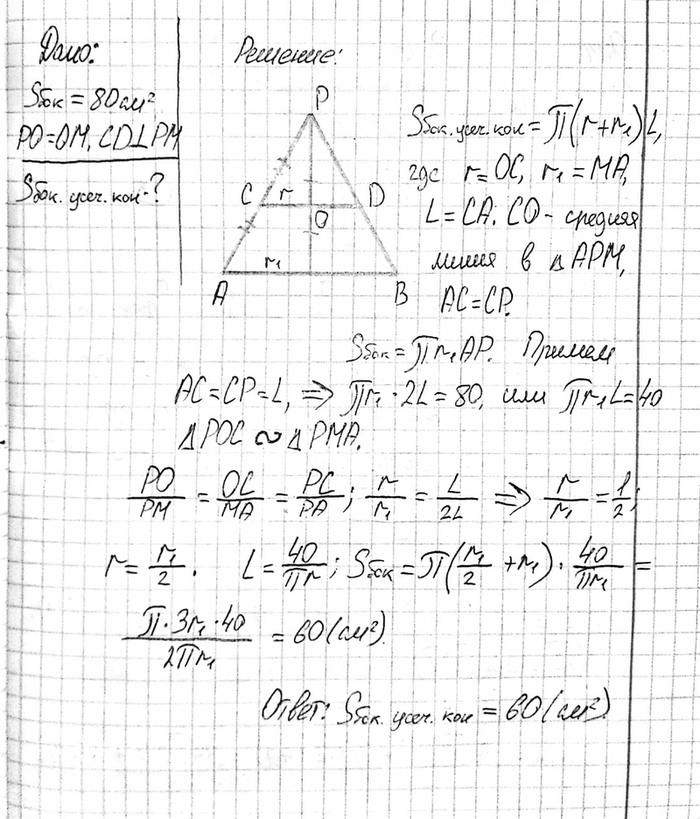 Дано:
Sбок = 80 см²
PO=OM, CD⊥PM
Sбок. усеч. кон - ?
Решение:
P
C r D
O
r₁
A B
Sбок. усеч. кон = π(r+r₁)L,
где r=OC, r₁=MA,
L=CA. CO - средняя
линия в △APM,
AC=CP.
Sбок = πr₁AP. Примем
AC=CP=L, ⇒ πr₁·2L=80, или πr₁L=40
△POC ∾ △PMA.
PO/PM = OC/MA = PC/PA; r/r₁ = L/2L ⇒ r/r₁ = 1/2;
r = r₁/2. L = 40/πr; Sбок = π(r₁/2 + r₁) · 40/πr₁ =
π·3r₁·40/2πr₁ = 60 (см²)
Ответ: Sбок. усеч. кон = 60 (см²)